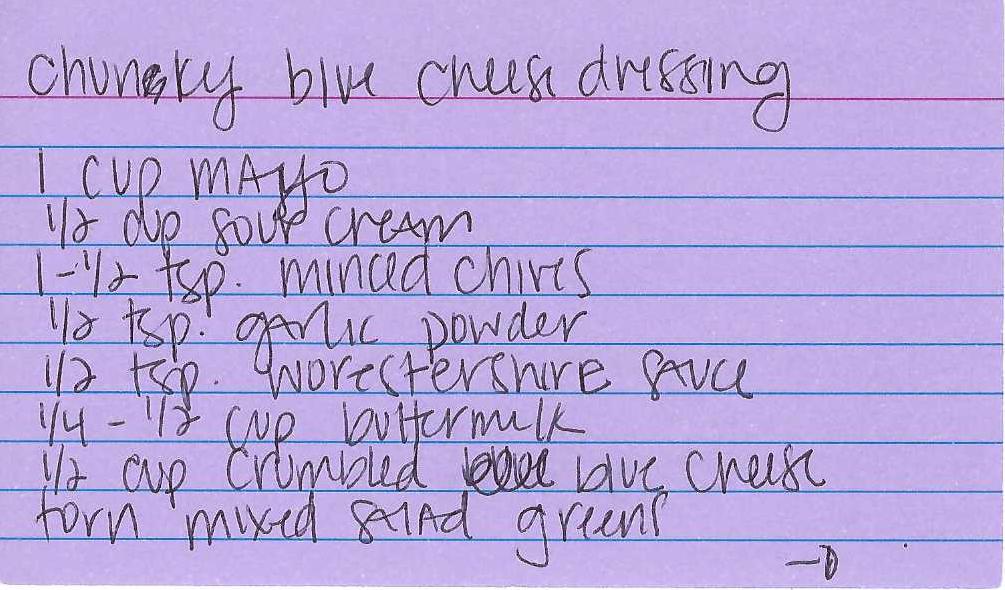 chunky blue cheese dressing
1 cup mayo
1/2 cup sour cream
1-1/2 tsp. minced chives
1/2 tsp. garlic powder
1/2 tsp. worestershire sauce
1/4 - 1/2 cup buttermilk
1/2 cup crumbled blue cheese
torn mixed salad greens